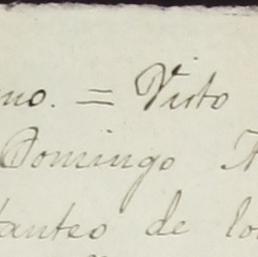 uno. = Visto
Domingo
tanteo de los